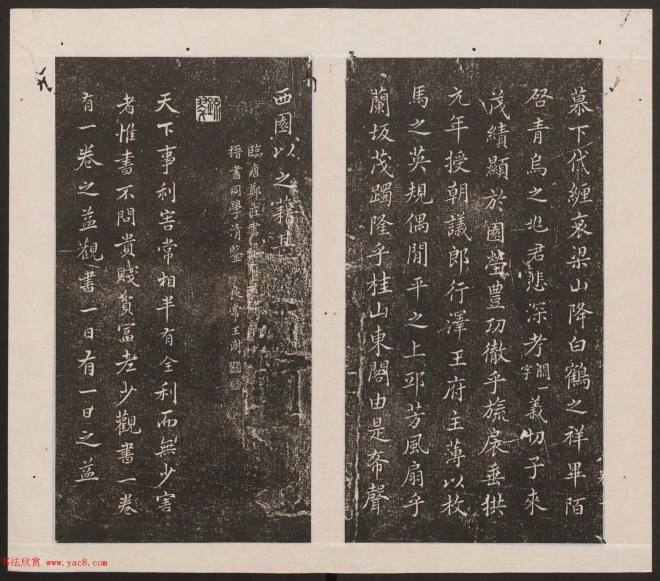 慕下代纏哀梁山降白鶴之祥畢陌
啓青烏之兆君悲深考闕一字義切子來
茂績顯於園塋豊功徹乎旒扆垂拱
元年授朝議郎行澤王府主薄以枚
馬之英規偶閒平之上邸芳風扇乎
蘭坂茂躅隆乎桂山東閤由是布聲
西園以之籍甚
臨唐鄭莊書
搢書同學清鑒 良常王澍
天下事利害常相半有全利而無少害
者惟書不問貴賤貧富老少觀書一卷
有一卷之益觀書一日有一日之益
书法欣赏 www.yac8.com